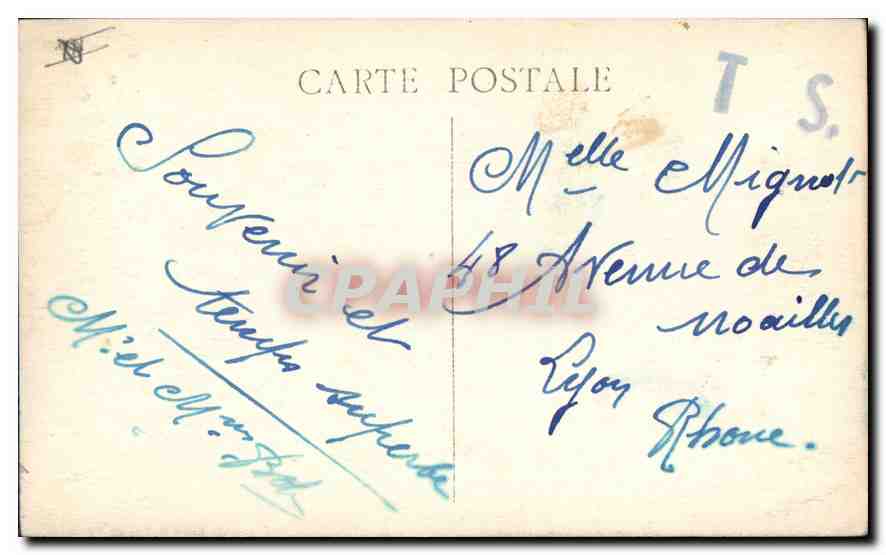 CARTE POSTALE
T S.
Souvenir et
temps superbe
Mr et Mme
Melle Mignot
48 Avenue de
Noailles
Lyon
Rhone.
CPAPHIL